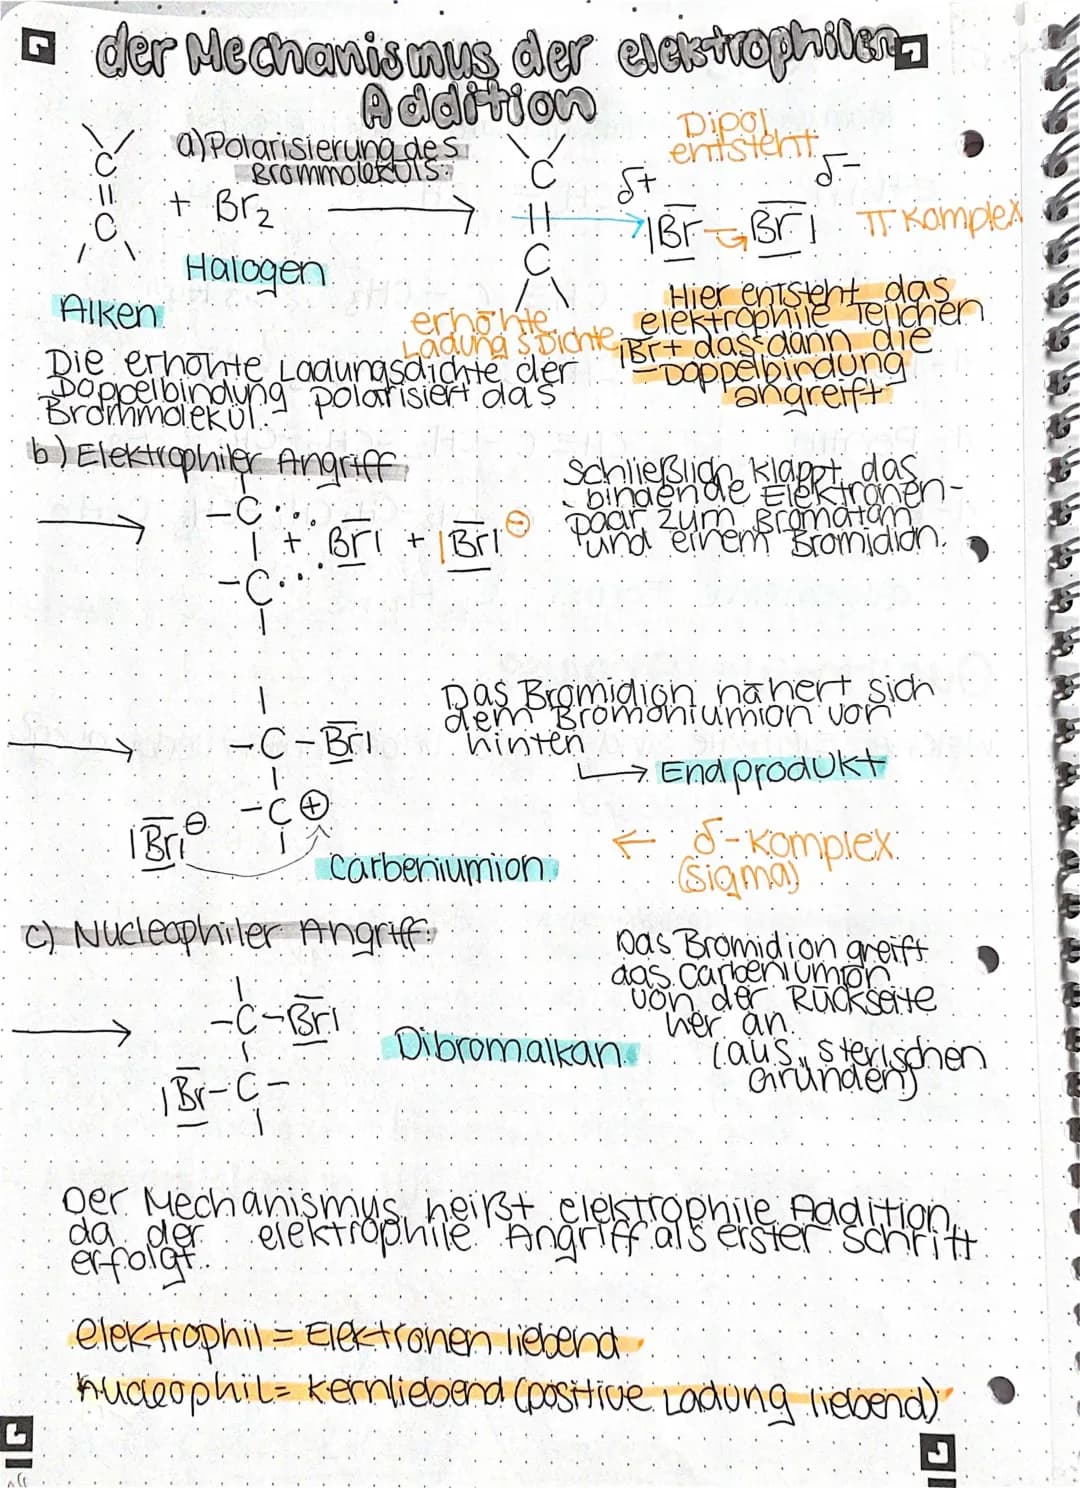 der Mechanismus der elektrophilen
Addition
a) Polarisierung des
Brommoleküls:
Dipol
entsteht
C
C
+ Br2
C
C
δ+
δ-
|Br
Br|
π Komplex
Halogen
Alken
erhöhte
Ladungsdichte
Hier entsteht das
elektrophile Teilchen
|Br+ das dann die
Doppelbindung
angreift
Die erhöhte Ladungsdichte der
Doppelbindung polarisiert das
Brommolekül.
b) Elektrophiler Angriff
Schließlich klappt das
bindende Elektronen-
paar zum Bromatom
und einem Bromidion.
-C
| + Br| + |Br| ⊖
-C
Das Bromidion nähert sich
dem Bromoniumion von
hinten
→ Endprodukt
-C-Br|
-C ⊕
|Br| ⊖
Carbeniumion
← δ-Komplex
(sigma)
c) Nucleophiler Angriff:
Das Bromidion greift
das Carbeniumion
von der Rückseite
her an.
(aus sterischen
Gründen)
-C-Br|
|Br-C-
Dibromalkan
Der Mechanismus heißt elektrophile Addition,
da der elektrophile Angriff als erster Schritt
erfolgt.
elektrophil = Elektronen liebend
nucleophil = kernliebend (positive Ladung liebend)